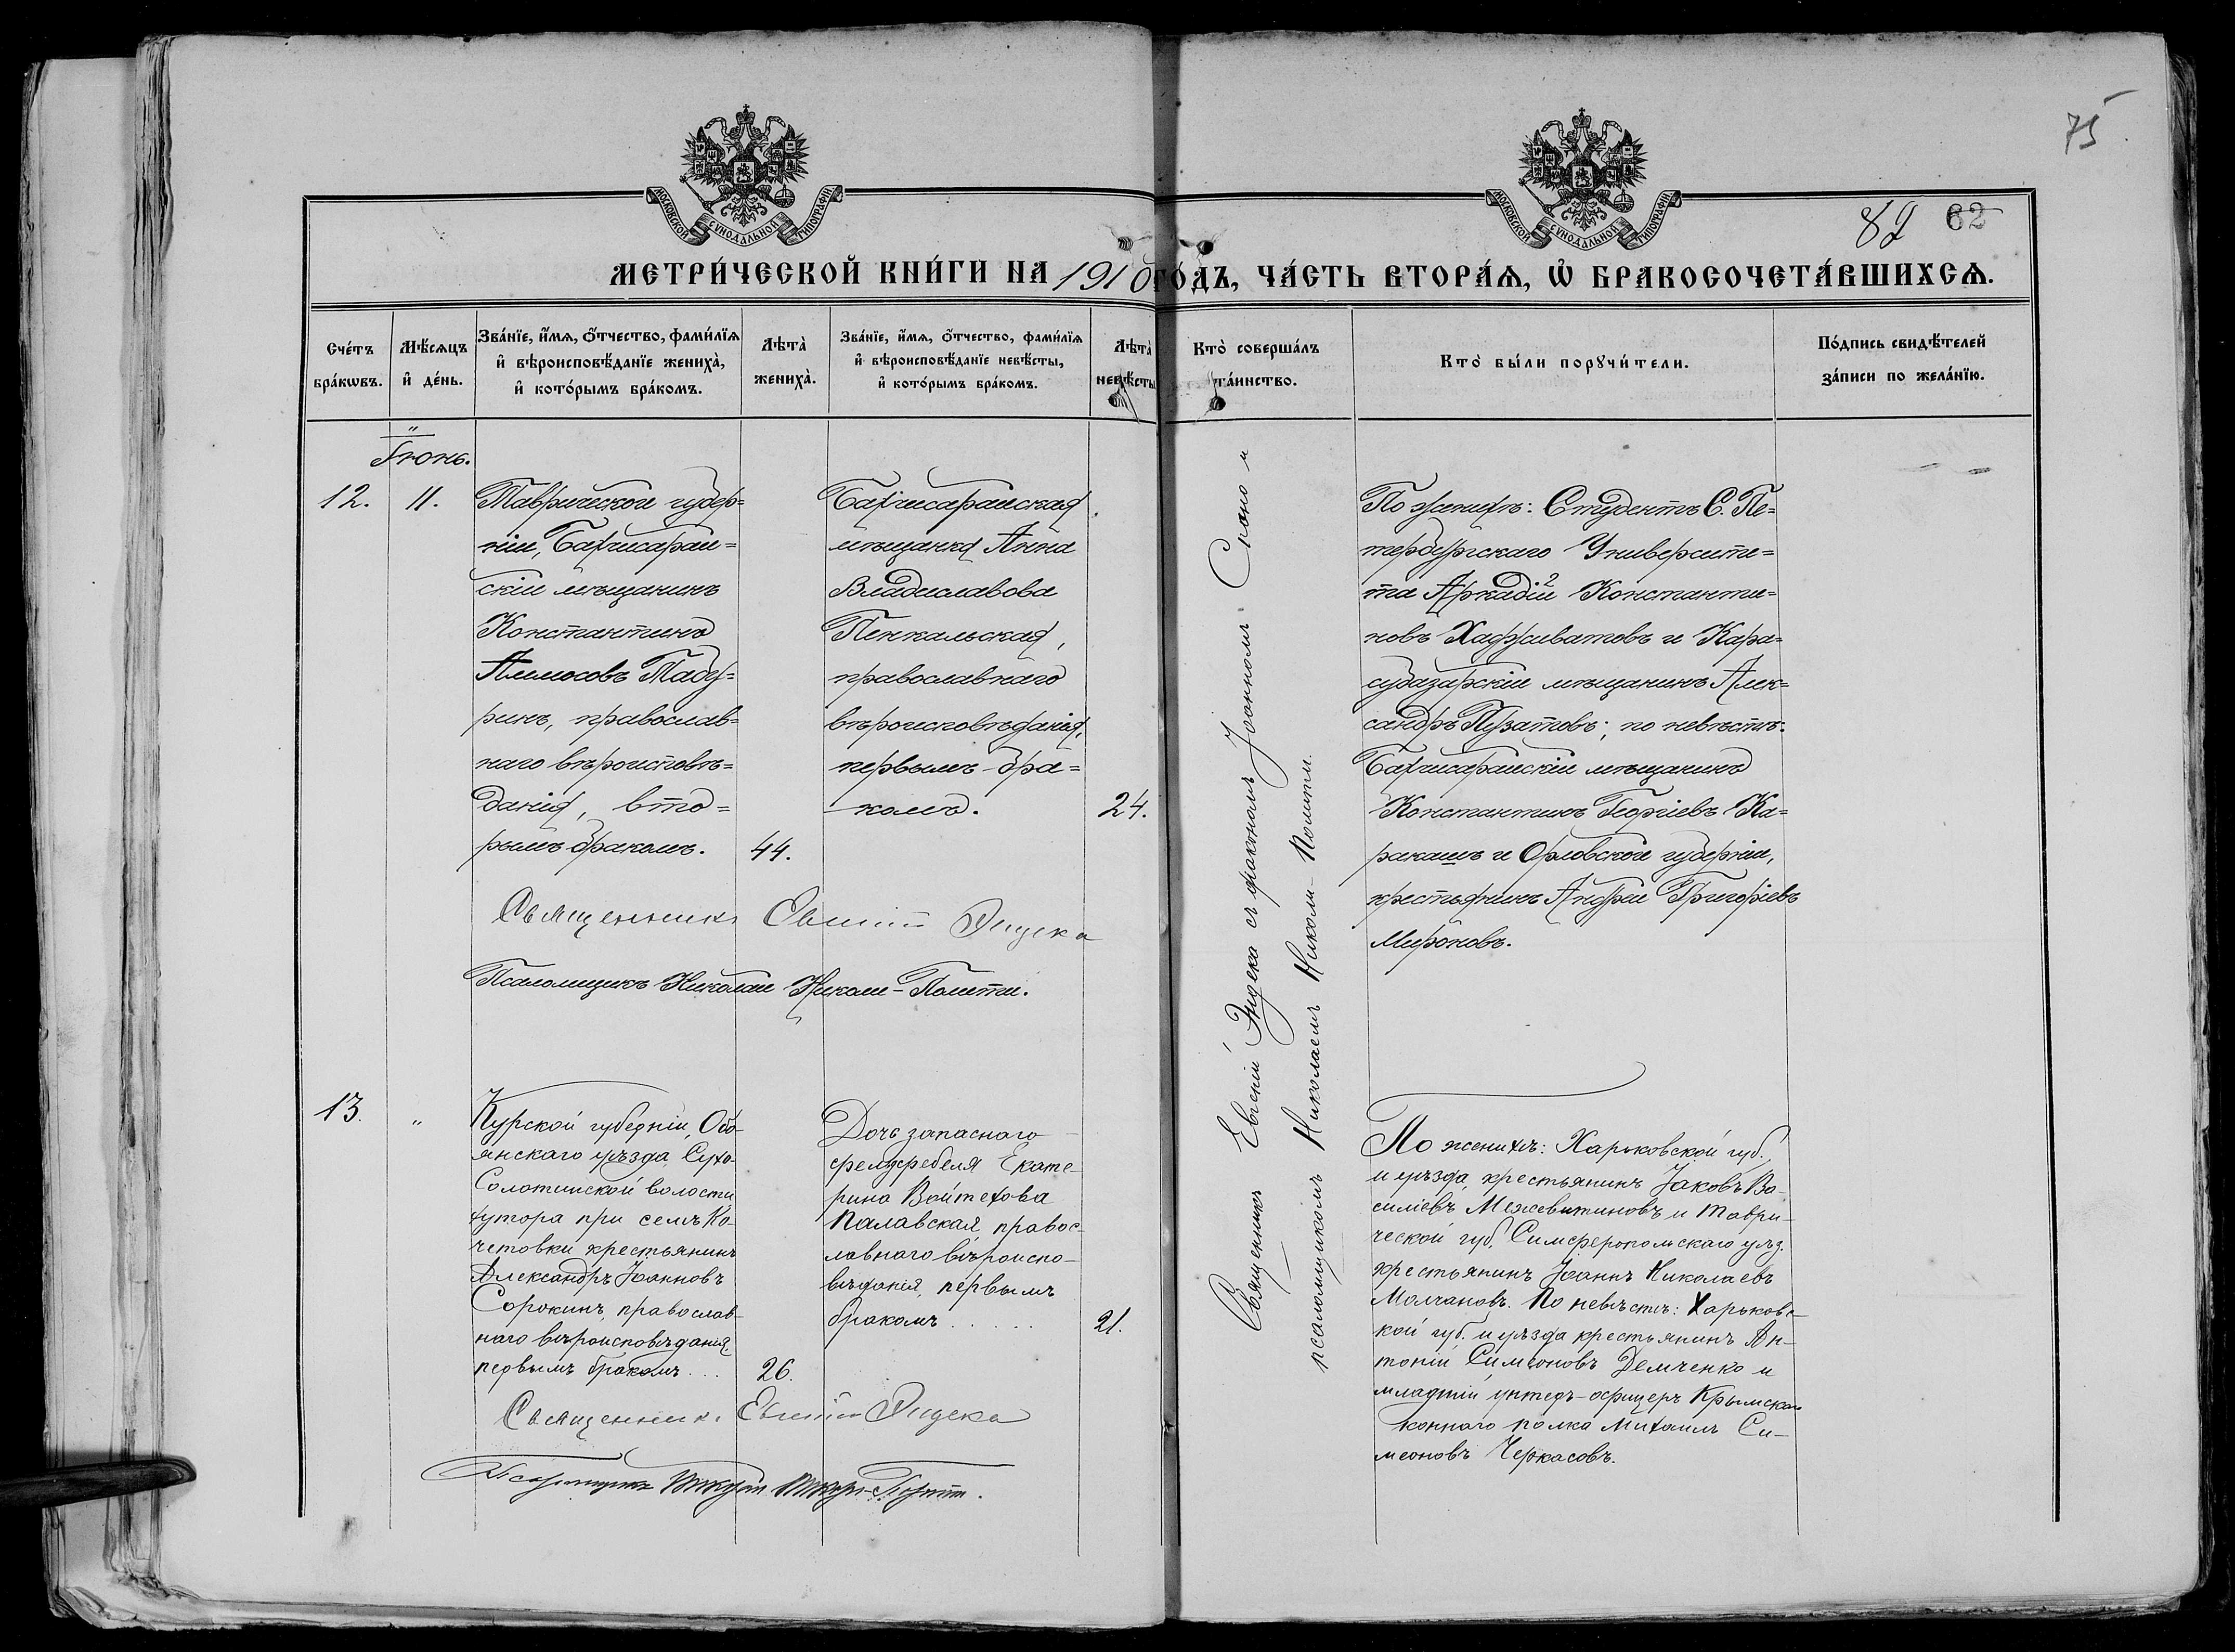 75
МОСКОВСКОЙ СѴНОДАЛЬНОЙ ТИПОГРАФІИ
МОСКОВСКОЙ СѴНОДАЛЬНОЙ ТИПОГРАФІИ
82 62
МЕТРИ́ЧЕСКОЙ КНИ́ГИ НА 1910 ГО́ДЪ, ЧА́СТЬ ВТОРА́Ѧ, Ѽ БРАКОСОЧЕТА́ВШИХСѦ.
Сче́тъ
бра́кѡвъ.
Мѣ́сѧцъ
и҆ де́нь.
Зва́нїе, и҆́мѧ, ѻ҆́тчество, фами́лїѧ
и҆ вѣроисповѣ́данїе жениха̀,
и҆ кото́рымъ бра́комъ.
Лѣ́та̀
жениха̀.
Зва́нїе, и҆́мѧ, ѻ҆́тчество, фами́лїѧ
и҆ вѣроисповѣ́данїе невѣ́сты,
и҆ кото́рымъ бра́комъ.
Лѣ́та̀
невѣ́сты
Кто̀ соверша́лъ
та́инство.
Кто̀ бы́ли порꙋчи́тели.
По́дпись свидѣ́телей
за́писи по жела́нїю.
Іюнь.
12.
11.
Таврической губер=
ніи, Бахчисарай=
скій мѣщанинъ
Константинъ
православ=
наго вѣроисповѣ=
данія, вто=
рымъ бракомъ.
44.
Бахчисарайская
мѣщанка Анна
Владиславова
Пенкальская,
православнаго
вѣроисповѣданія,
первымъ бра=
комъ.
24.
Священникъ Евгеній Эндека
Псаломщикъ Николай Николи-Полити.
Священникъ Евгеній Эндека съ диакономъ Іоанномъ и
псаломщикомъ Николаемъ Николи-Полити.
По женихѣ: Студентъ С. Пе=
тербургскаго Университе=
та Аркадій 2 Константи=
новъ Хадживатовъ и Кара=
субазарскій мѣщанинъ Алек=
сандръ Пузатовъ; по невѣстѣ:
Бахчисарайскій мѣщанинъ
Константинъ Георгіевъ Ка=
ракашъ и Орловской губерніи,
крестьянинъ Андрей Григорьевъ
Мироновъ.
13.
"
Курской губерніи, Обо-
янскаго уѣзда, Сухо-
Солотинской волости
хутора при селѣ Ко-
четовки крестьянинъ
Александръ Іоанновъ
Сорокинъ, православ-
наго вѣроисповѣданія
первымъ бракомъ...
26.
Дочь запаснаго
фельдфебеля Екате-
рина Войтехова
Палавская, правос-
лавнаго вѣроиспо-
вѣданія, первымъ
бракомъ.....
21.
Священникъ Евгеній Эндека
Псаломщикъ Николай Николи-Полити.
По женихѣ: Харьковской губ.,
и уѣзда, крестьянинъ Іаковъ Ва-
силіевъ Межевитиновъ и Таври-
ческой губ. Симферопольскаго уѣз.
крестьянинъ Іоаннъ Николаевъ
Молчановъ. По невѣстѣ: Харьковс-
кой губ. и уѣзда крестьянинъ Ан-
тоній Симеоновъ Демченко и
младшій унтеръ-офицеръ Крымскаго
коннаго полка Михаилъ Си-
меоновъ Черкасовъ.